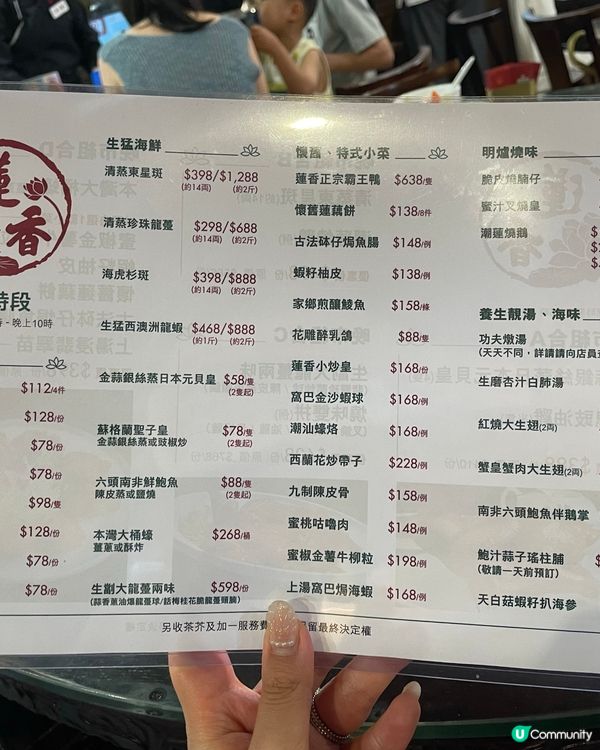 蓮
香
時段
- 晚上10時
$112/4件
$128/份
$78/份
$78/份
$98/隻
$128/份
$78/份
$78/份
生猛海鮮
清蒸東星斑 $398/$1,288
(約14両) (約2斤)
清蒸珍珠龍躉 $298/$688
(約14両) (約2斤)
海虎杉斑 $398/$888
(約14両) (約2斤)
生猛西澳洲龍蝦 $468/$888
(約1斤) (約2斤)
金蒜銀絲蒸日本元貝皇 $58/隻
(2隻起)
蘇格蘭聖子皇 $78/隻
金蒜銀絲蒸或豉椒炒 (2隻起)
六頭南非鮮鮑魚 $88/隻
陳皮蒸或鹽燒 (2隻起)
本灣大桶蠔 $268/桶
薑蔥或酥炸
生劏大龍躉兩味 $598/份
(蒜香蔥油爆龍躉球/話梅桂花脆龍躉頭腩)
懷舊、特式小菜
蓮香正宗霸王鴨 $638/隻
懷舊蓮藕餅 $138/8件
古法砵仔焗魚腸 $148/例
蝦籽柚皮 $138/例
家鄉煎釀鯪魚 $158/條
花雕醉乳鴿 $88/隻
蓮香小炒皇 $168/份
窩巴金沙蝦球 $168/例
潮汕蠔烙 $168/例
西蘭花炒帶子 $228/例
九制陳皮骨 $158/例
蜜桃咕嚕肉 $148/例
蜜椒金薯牛柳粒 $198/例
上湯窩巴焗海蝦 $168/例
明爐燒味
脆皮燒腩仔
蜜汁叉燒皇
潮蓮燒鵝
養生靚湯、海味
功夫燉湯
(天天不同，詳請請向店員
生磨杏汁白肺湯
紅燒大生翅(2両)
蟹皇蟹肉大生翅(2両)
南非六頭鮑魚伴鵝掌
鮑汁蒜子瑤柱脯
(敬請一天前預訂)
天白菇蝦籽扒海參
另收茶芥及加一服務費
留最終決定權
U Community